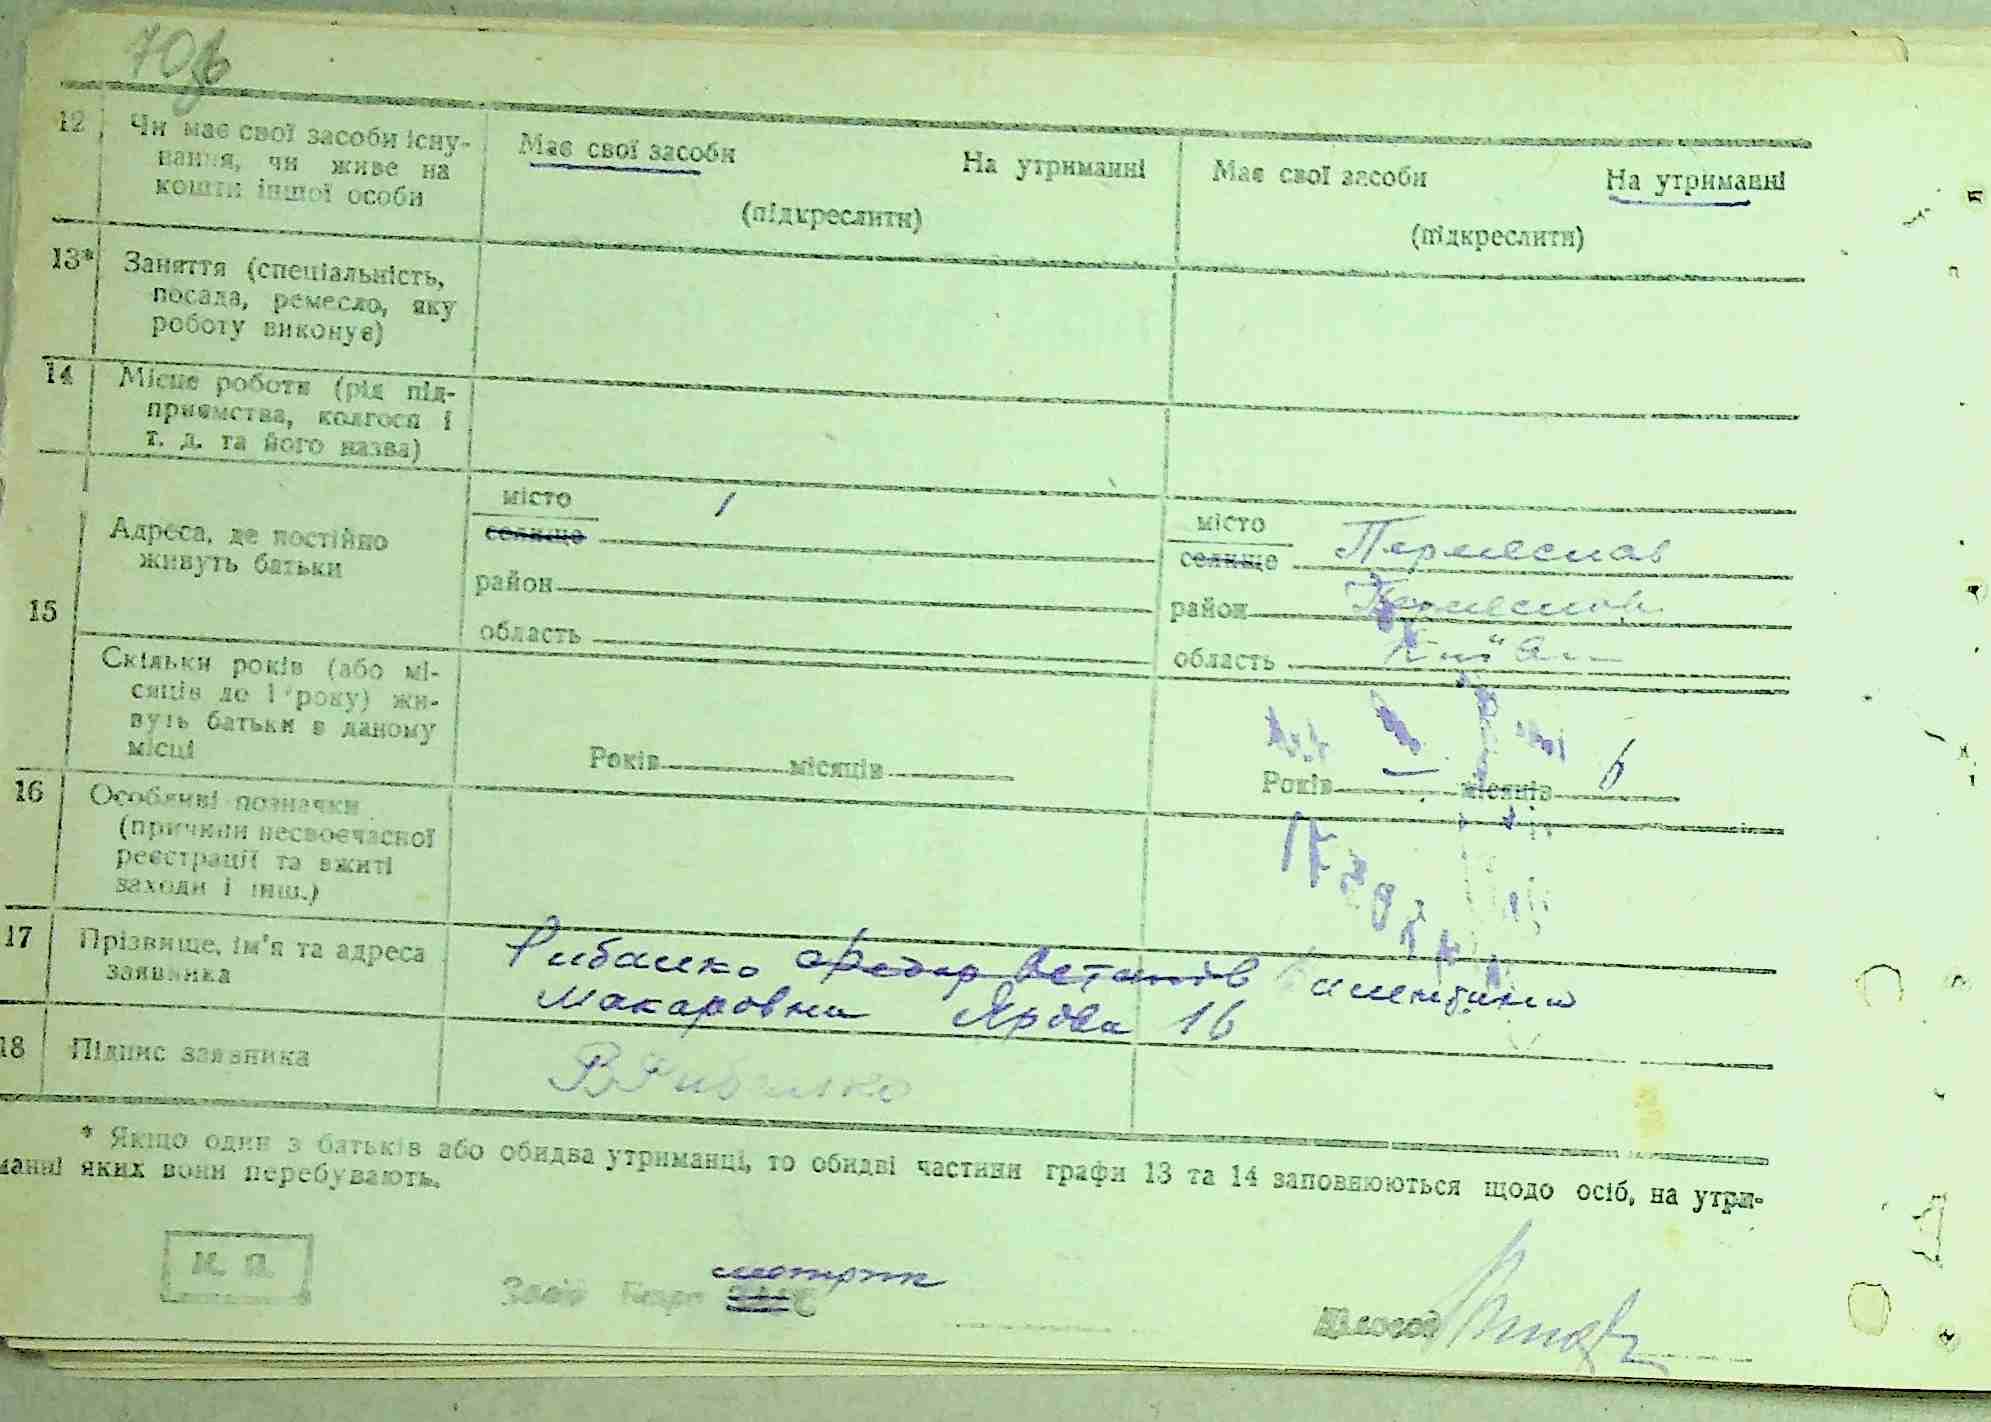 70
12 Чи має свої засоби існу-
вання, чи живе на
кошти іншої особи
Має свої засоби На утриманні
(підкреслити)
Має свої засоби На утриманні
(підкреслити)
13* Заняття (спеціальність,
посада, ремесло, яку
роботу виконує)
14 Місце роботи (рід під-
приємства, колгосп і
т. д. та його назва)
15
Адреса, де постійно
живуть батьки
місто
селище
район
область
місто Переяслав
селище
район Переяслов
область Київ
Скільки років (або мі-
сяців до 1 року) жи-
вуть батьки в даному
місці
Років місяців
Років — місяців 6
16 Особливі позначки
(причини несвоєчасної
реєстрації та вжиті
заходи і інш.)
17 Прізвище, ім'я та адреса
заявника
Рибалко Федор Остапів
Макаровна Ярова 16
18 Підпис заявника
В Рибалко
* Якщо один з батьків або обидва утриманці, то обидві частини графи 13 та 14 заповнюються щодо осіб, на утри-
манні яких вони перебувають.
М. П.
Зав. Бюро ЗАГС